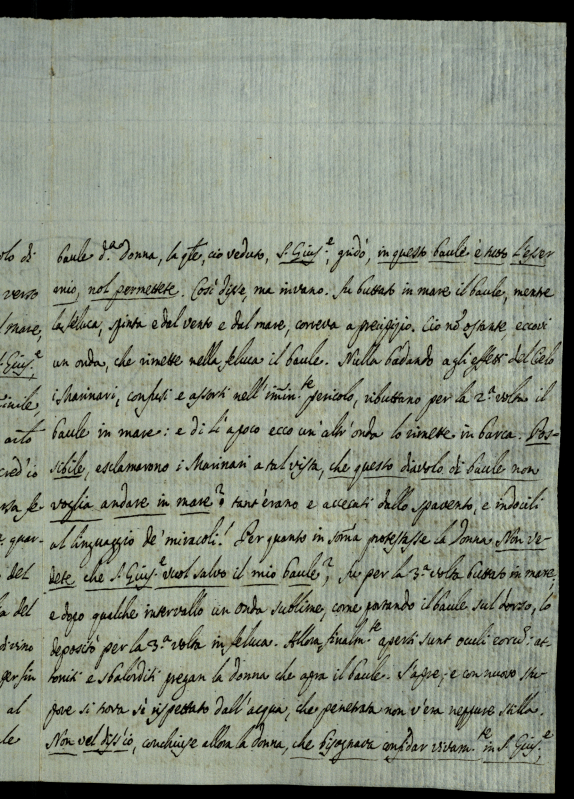 olo di
verso
l mare,
S. Gius.e
arto
cred'io
e quar-
del
a del
divino
per fin
al
le
baule d.a Donna, la qle, ciò veduto, S. Gius.e, gridò, in questo baule è tutto l'esser
mio, nol permettete. Così disse, ma invano. Fu buttato in mare il baule, mentre
la feluca, spinta e dal vento e dal mare, correva a precipizio. Ciò nō ostante, eccovi
un onda, che rimette nella feluca il baule. Nulla badando agli effetti del Cielo
i Marinari, confusi e assorti nell'imin.te pericolo, ributtano per la 2.a volta il
baule in mare: e di lì a poco ecco un'altr'onda lo rimette in barca. Pos-
sibile, esclamarono i Marinari a tal vista, che questo diavolo di baule non
voglia andare in mare? tant'erano e accecati dallo spavento, e indocili
al linguaggio de' miracoli! Per quanto in soma protestasse la donna Non ve-
dete che S. Gius.e vuol salvo il mio baule?, fu per la 3.a volta buttato in mare;
e dopo qualche intervallo un onda sublime, come portando il baule sul dorso, lo
depositò per la 3.a volta in feluca. Allora finalm.te aperti sunt oculi eorum: at-
toniti e sbalorditi pregan la donna che apra il baule. S'apre; e con nuovo stu-
pore si trova sì rispettato dall'acqua, che penetrata non v'era neppure stilla.
Non vel diss'io, conchiuse allora la donna, che bisognava confidar vivam.te in S. Gius.e,